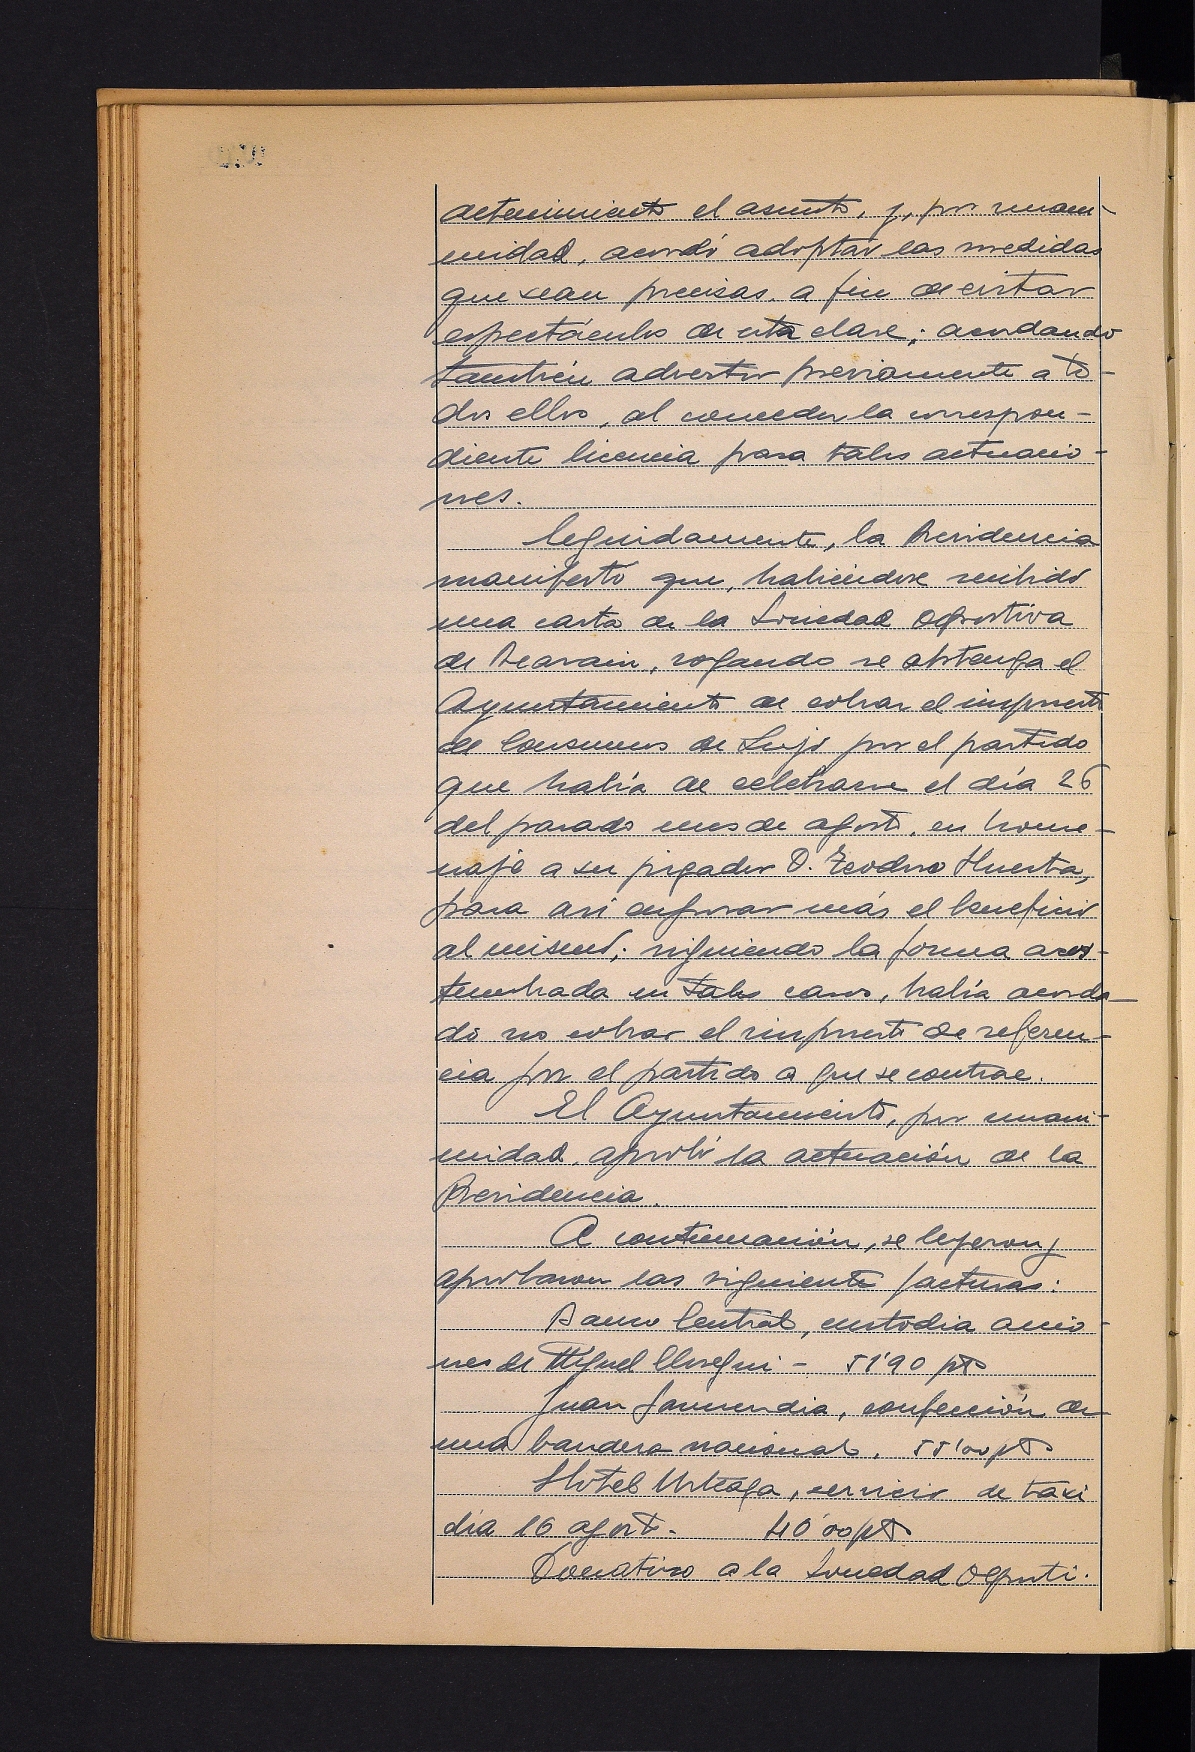 detenimiento el asunto, y, por unani-
midad, acordó adoptar las medidas
que sean precisas a fin de evitar
espectáculos de esta clase; acordando
también advertir previamente a to-
dos ellos, al conceder la correspon-
diente licencia para tales actuacio-
nes.
Seguidamente, la Presidencia
manifestó que, habiéndose recibido
una carta de la Sociedad Deportiva
de Beasain, rogando se abstenga el
Ayuntamiento de cobrar el impuesto
de Consumos de Lujo por el partido
que había de celebrarse el día 26
del pasado mes de agosto, en home-
naje a su jugador D. Teodoro Huerta,
para así engrosar más el beneficio
al mismo; siguiendo la forma acos-
tumbrada en tales casos, había acorda-
do no cobrar el impuesto de referen-
cia por el partido a que se contrae.
El Ayuntamiento, por unani-
midad, aprobó la actuación de la
Presidencia.
A continuación, se leyeron y
aprobaron las siguientes facturas:
Banco Central, custodia accio-
nes de Miguel Yloseguí - 51'90 pts
Juan Garmendia, confección de
una bandera nacional. 55'00 pts
Hotel Urteaga, servicio de taxi
día 16 agosto. 40'00 pts
Donativo a la Sociedad Deporti-